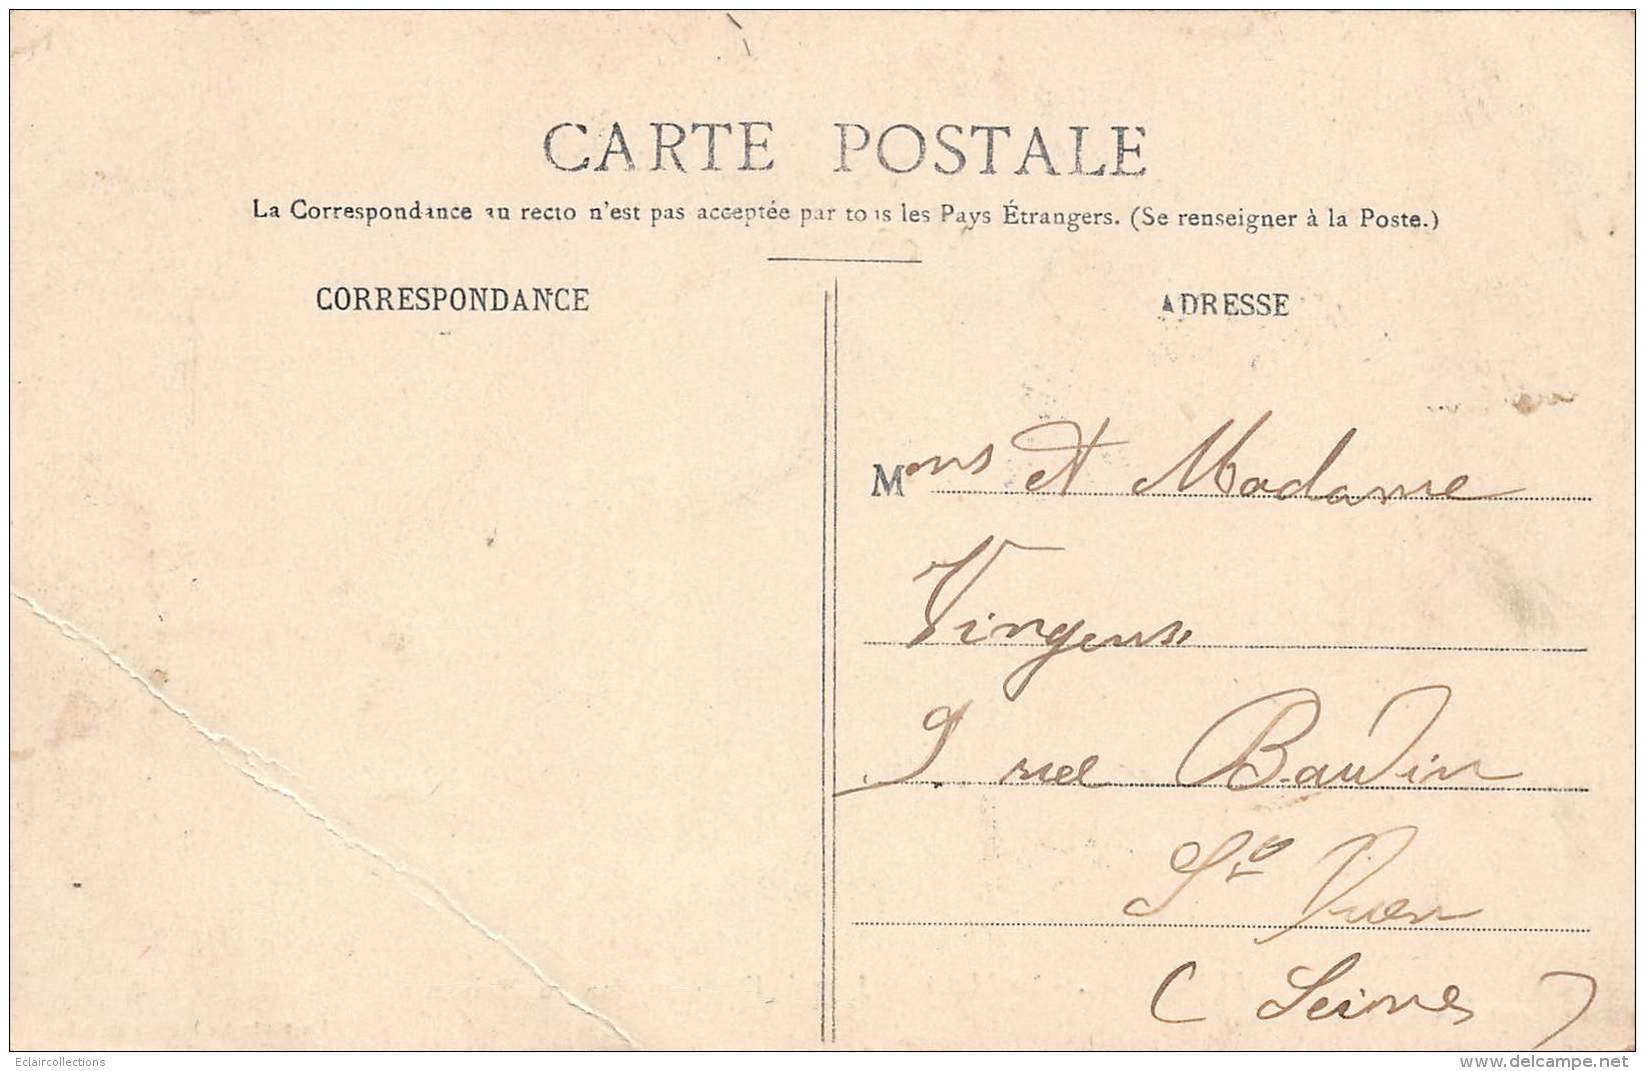 CARTE POSTALE
La Correspondance au recto n'est pas acceptée par tous les Pays Étrangers. (Se renseigner à la Poste.)
CORRESPONDANCE
ADRESSE
Mons et Madame
rue Baudin
St Ouen
(Seine)
Eclaircollections
www.delcampe.net